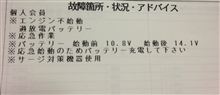 故障箇所・状況・アドバイス
個人会員
※エンジン不始動
過放電バッテリー
※応急作業
※バッテリー 始動前 10.8V 始動後 14.1V
※応急始動のためバッテリー充電して下さい
※サージ対策機器使用